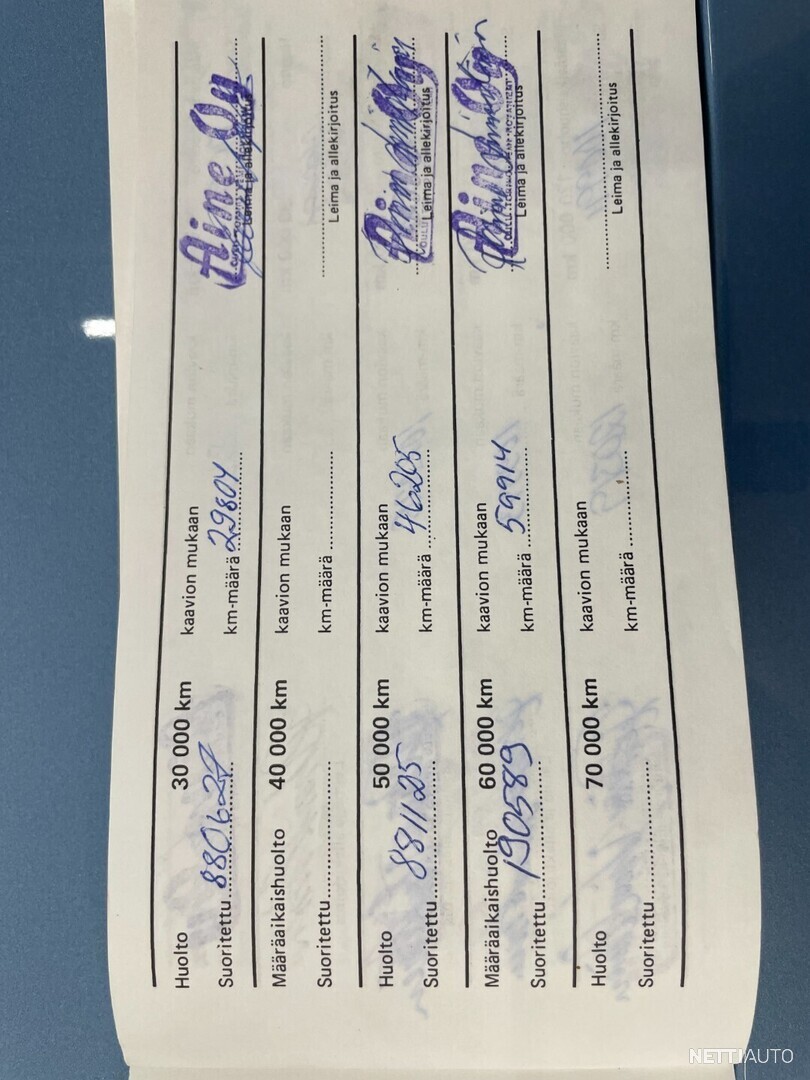 Huolto 30 000 km kaavion mukaan
Suoritettu 880627 km-määrä 29804 Leima ja allekirjoitus
Aine Oy
Määräaikaishuolto 40 000 km kaavion mukaan
Suoritettu km-määrä Leima ja allekirjoitus
Huolto 50 000 km kaavion mukaan
Suoritettu 881125 km-määrä 46205 Leima ja allekirjoitus
Määräaikaishuolto 60 000 km kaavion mukaan
Suoritettu 190589 km-määrä 59914 Leima ja allekirjoitus
Huolto 70 000 km kaavion mukaan
Suoritettu km-määrä Leima ja allekirjoitus
NETTIAUTO